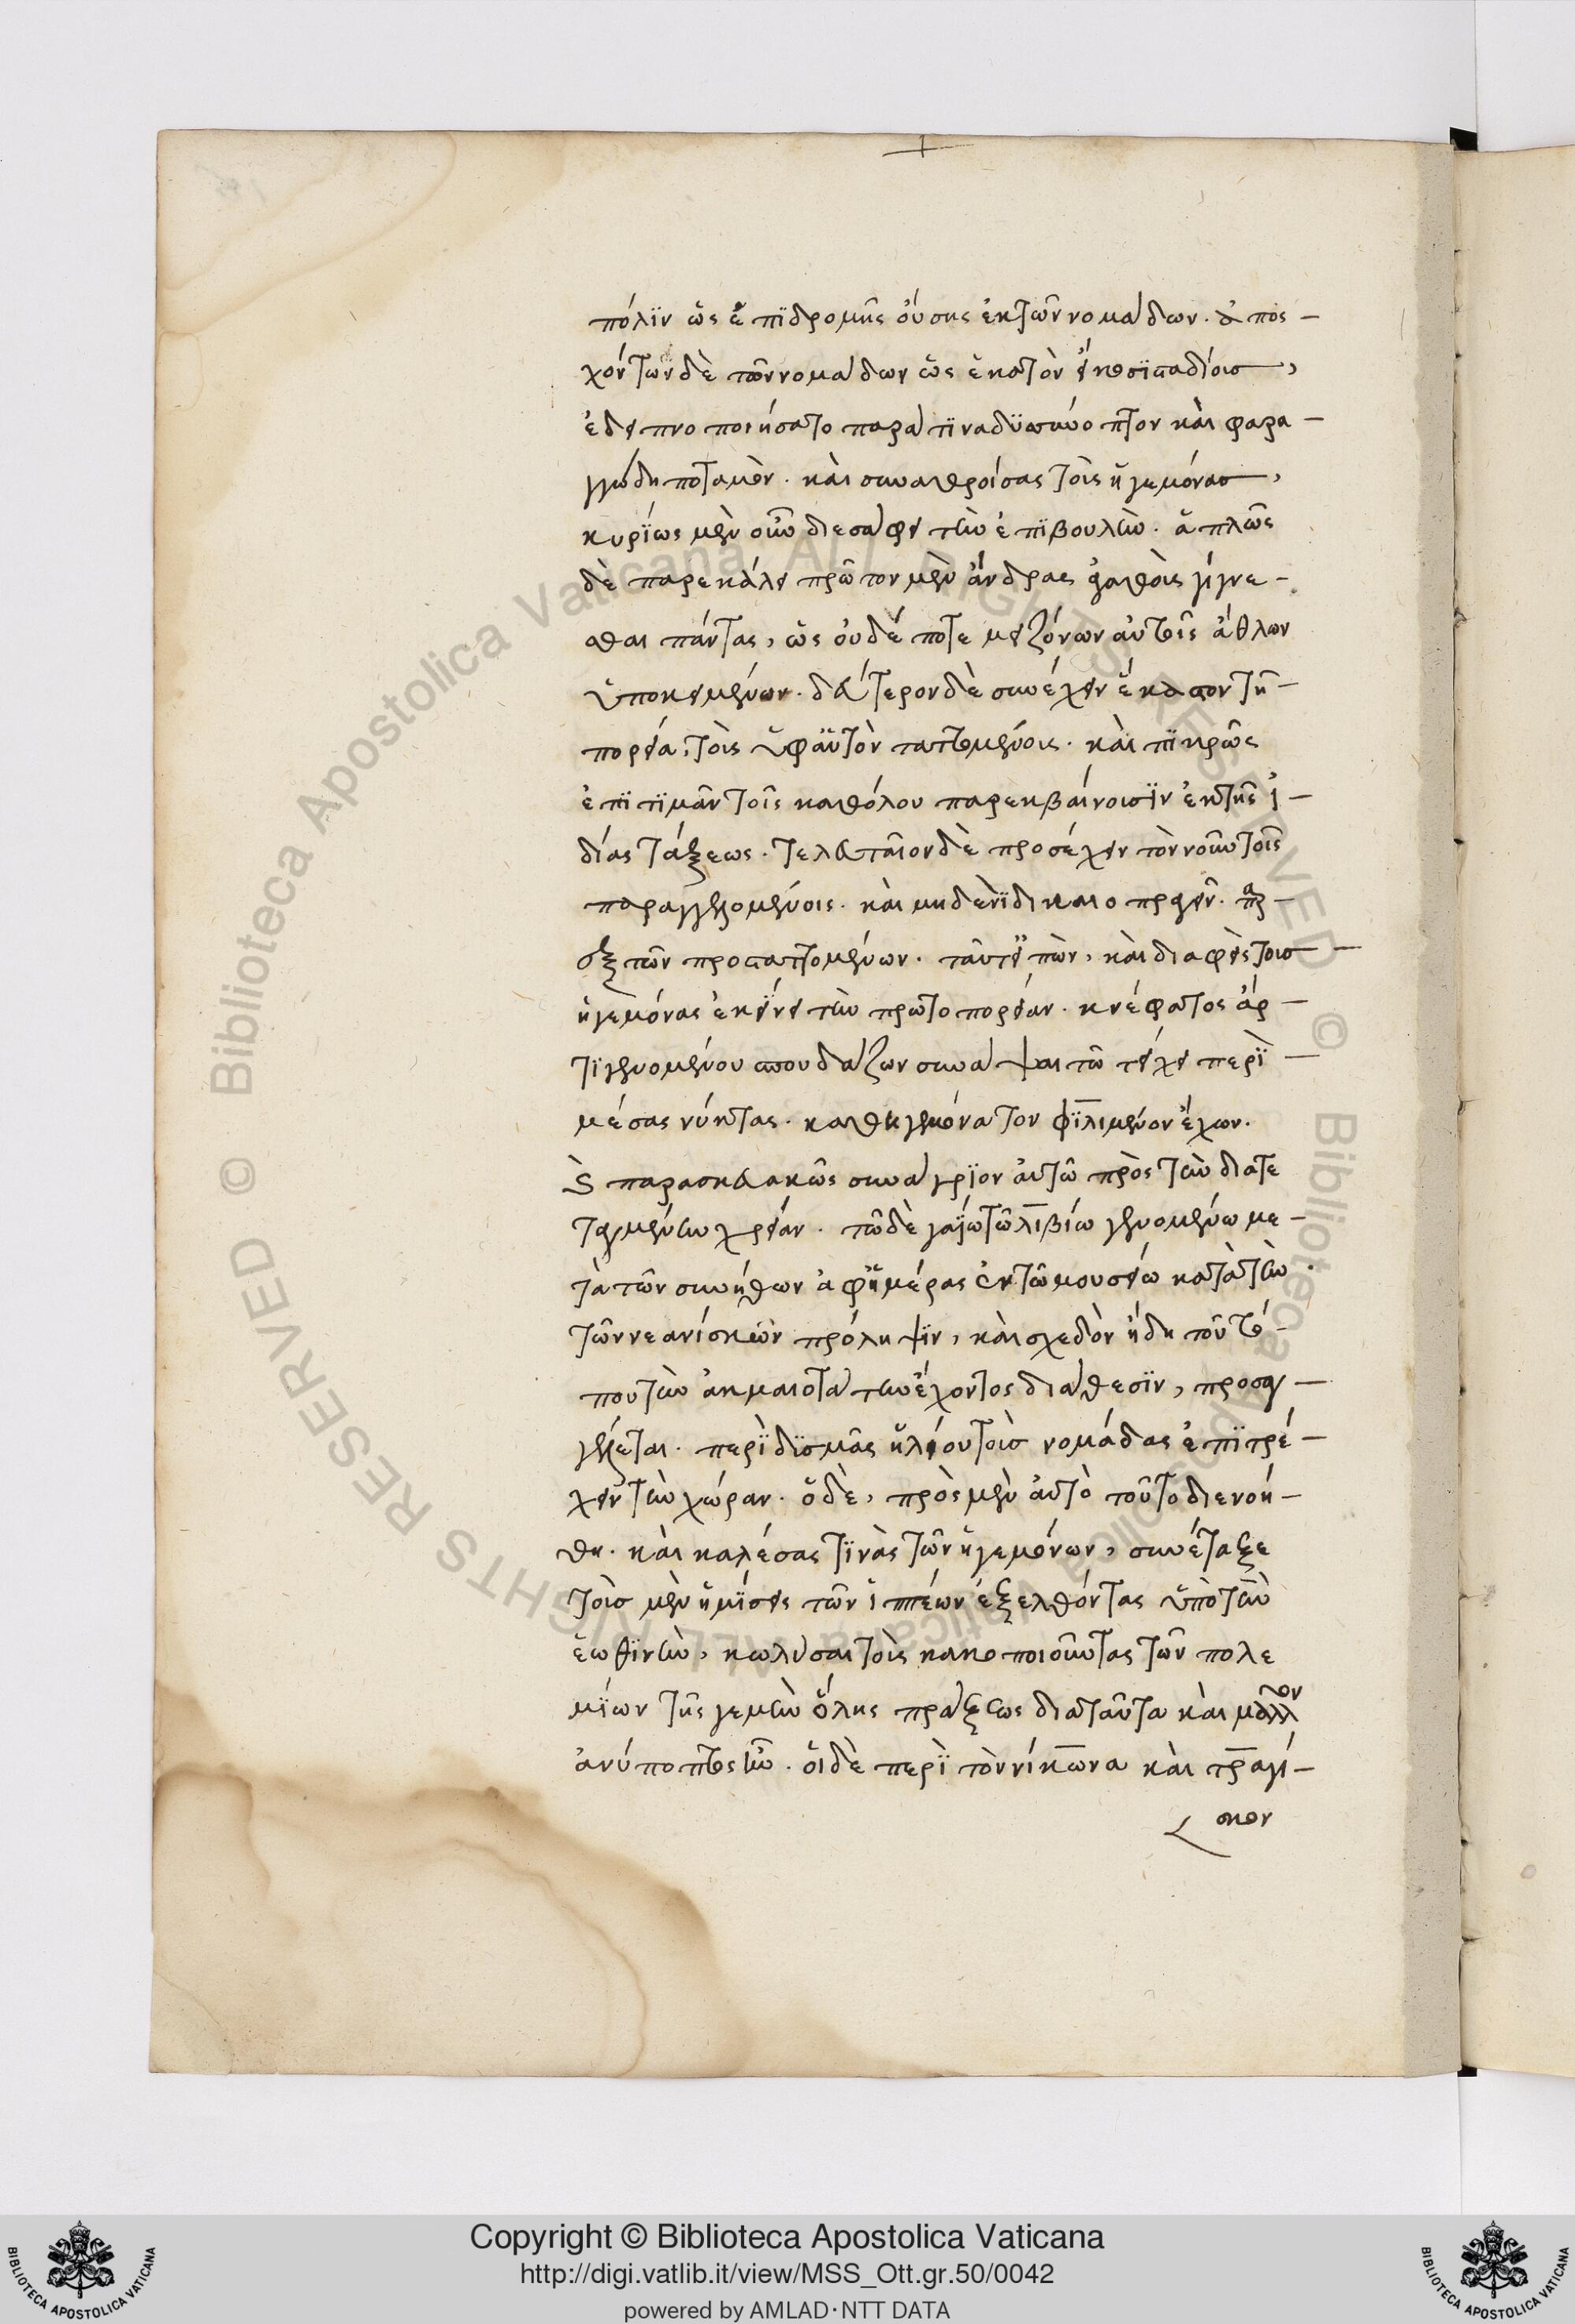 πόλϊν ὡς ἐπϊδρομῆς οὔσης ἐκ τῶν νομάδων. ἀποσ-
χόντων δὲ τῶν νομάδων ὡς ἑκατὸν εἴκοσϊ σταδίοισ,
ἐδειπνοποιήσατο παρά τϊνα δϋσσύνοπτον καὶ φαρα-
γγώδη ποταμόν. καὶ συναθροίσας τοὺς ἡγεμόνασ,
κυρΐως μὲν οὖν διεσάφει τὴν ἐπϊβουλὴν. ἁπλῶς
δὲ παρεκάλει πρῶτον μὲν ἄνδρας ἀγαθοὺς γίγνε-
σθαι πάντας, ὡς οὐδέποτε μειζόνων αὐτοῖς ἄθλων
ὑποκειμένων. δεύτερον δὲ συνέχειν ἕκαστον τῆ
πορεία, τοὺς ὑφ αὑτὸν ταττομένους. καὶ πϊκρῶς
ἐπϊτϊμᾶν τοῖς καθόλου παρεκβαίνουσϊν ἐκ τῆς ἰ-
δίας τάξεως. τελευταῖον δὲ προσέχειν τὸν νοῦν τοῖς
παραγγελλομένοις. καὶ μηδὲν ϊδιοπραγεῖν. παρ-
ὲξ τῶν προσταττομένων. ταῦτ εἰπὼν, καὶ διαφεὶς τοὺσ
ἡγεμόνας ἐκΐνει τὴν πρωτοπορείαν. κνέφατος ἄρ-
τϊ γενομένου σπουδάζων συνάψαι τῶ τείχει περὶ
μέσας νύκτας. καθηγεμόνα τὸν φϊλιμένον ἔχων.
καὶ παρασκευακὼς συνάγρϊον αὐτῶ πρὸς τὴν διατε
ταγμένην χρείαν. τῶ δὲ γαΐω τῶ λιβίω γενομένω με-
τὰ τῶν συνήθων ἀφ ἡμέρας ἐν τῶ μουσείω κατὰ τὴν
τῶν νεανίσκων πρόληψϊν, καὶ σχεδὸν ἤδη τοῦ πό-
του τὴν ἀκμαιοτάτην ἔχοντος διάθεσϊν, προσαγ-
γέλλεται. περὶ δϊσμὰς ἡλίου τοὺσ νομάδας ἐπϊτρέ-
χειν τὴν χώραν. ὁ δὲ, πρὸς μὲν αὐτὸ τοῦτο διενοή-
θη. καὶ καλέσας τϊνὰς τῶν ἡγεμόνων, συνέταξε
τοὺσ μὲν ἡμΐσεις τῶν ἱππέων ἐξελθόντας ὑπὸ τὴν
ἑωθϊνὴν, κωλῦσαι τοὺς κακοποιοῦντας τῶν πολε
μΐων τῆς γε μὴν ὅλης πράξεως διὰ ταῦτα καὶ μᾶλλον
ἀνύποπτος ἦν. οἱ δὲ περὶ τὸν νίκωνα καὶ τραγί-
σκον
Copyright © Biblioteca Apostolica Vaticana
http://digi.vatlib.it/view/MSS_Ott.gr.50/0042
powered by AMLAD·NTT DATA